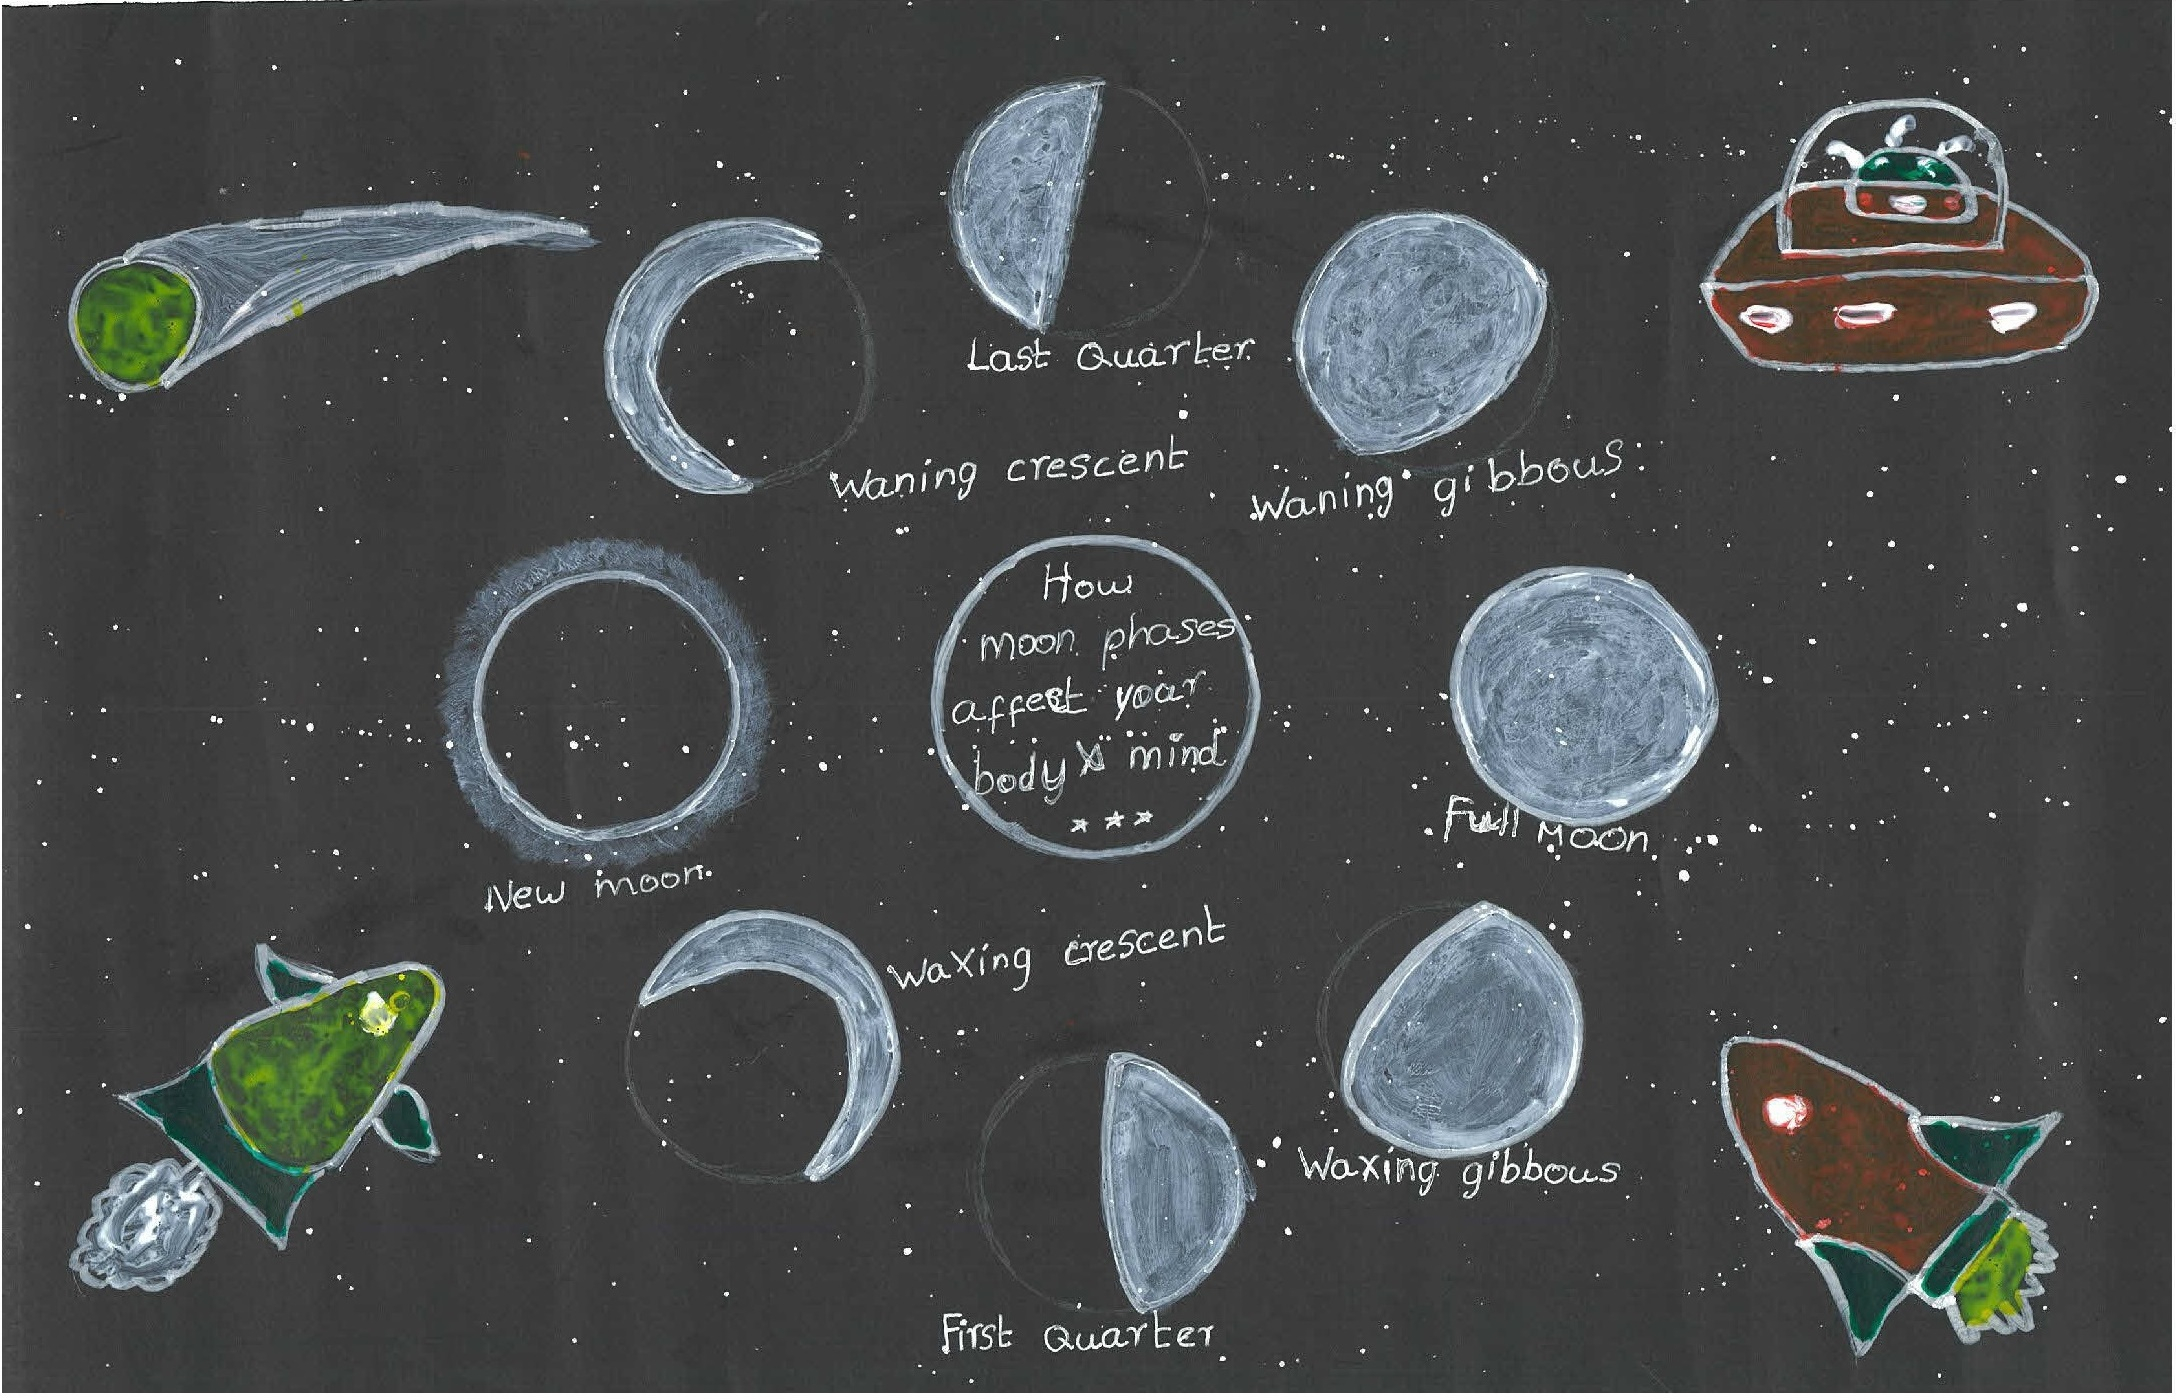 Last Quarter
Waning crescent
Waning gibbous
How
moon phases
affect your
body & mind
New moon
Full Moon
Waxing crescent
Waxing gibbous
First Quarter